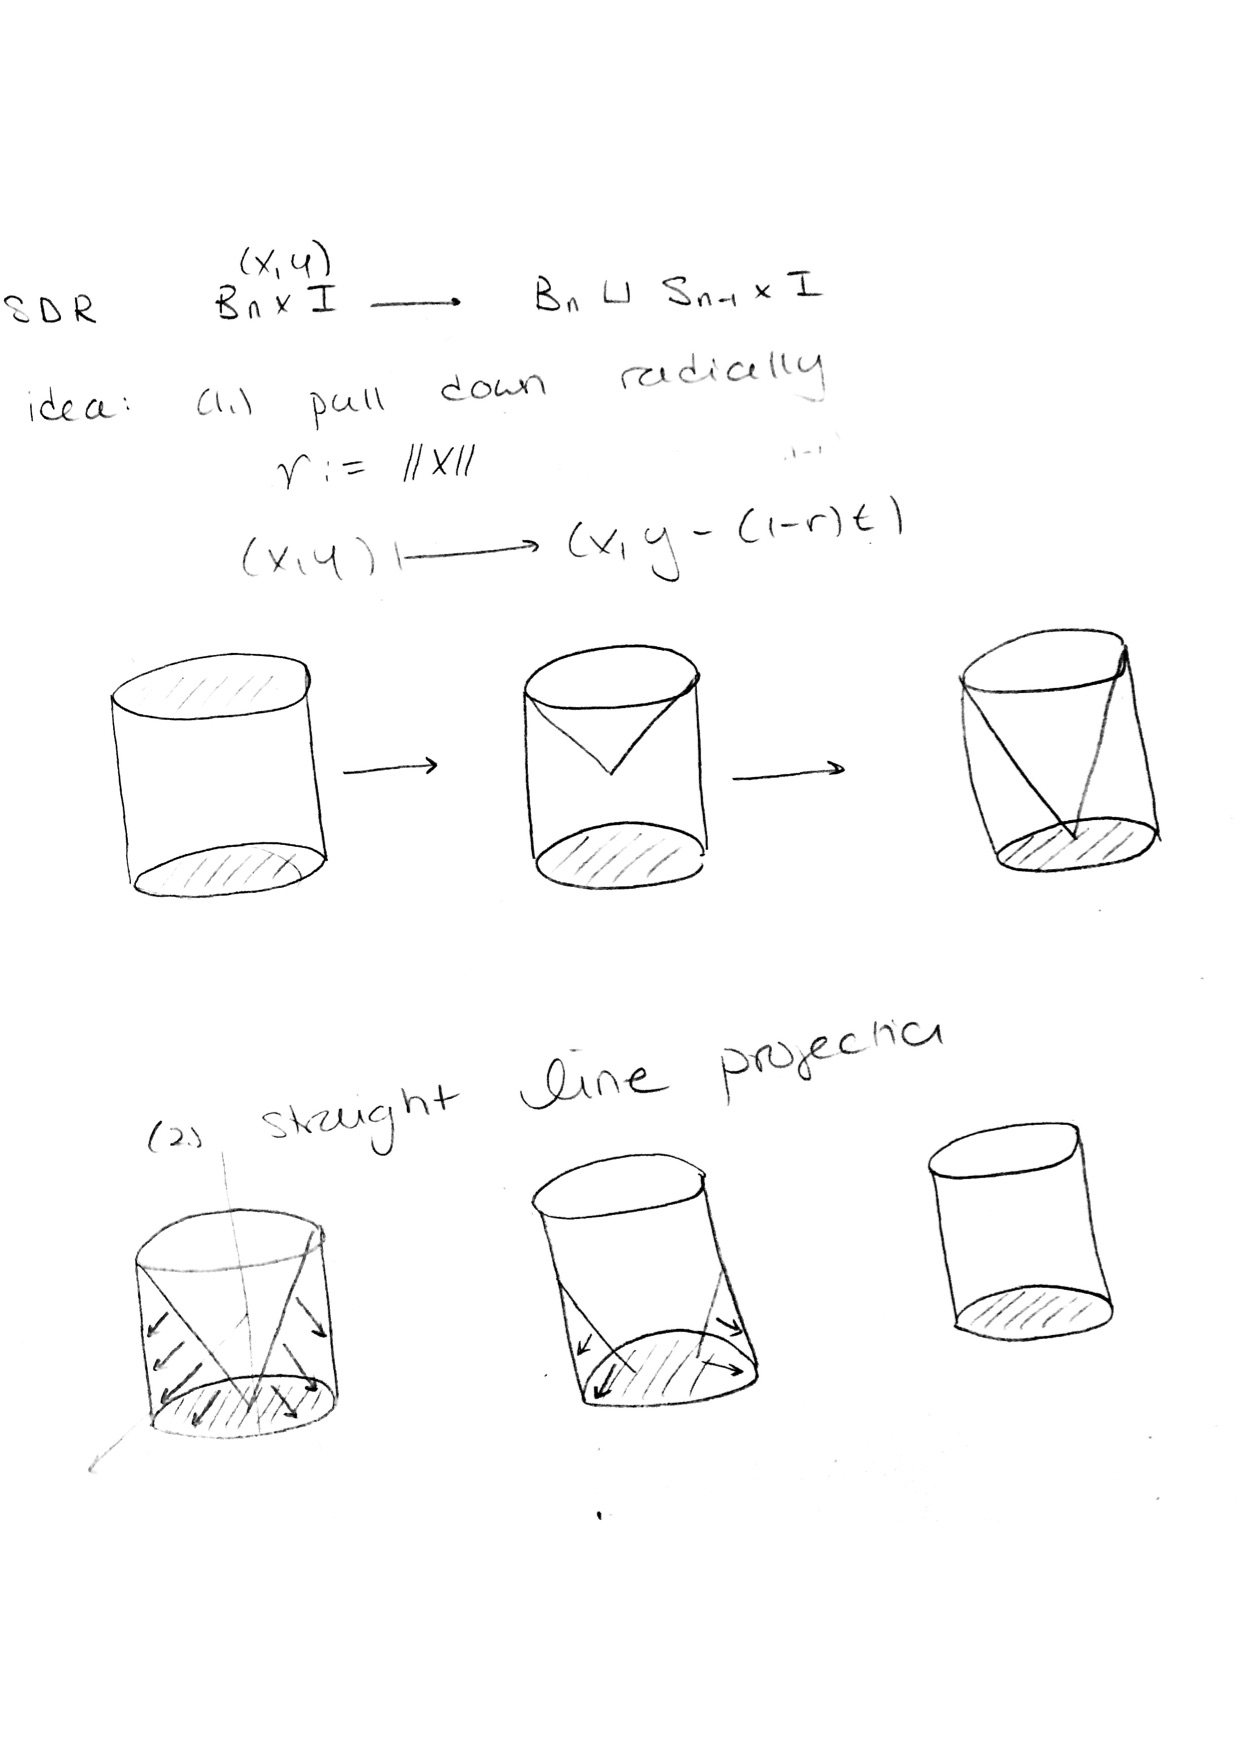 (x, y)
SDR Bn x I ⟶ Bn ⊔ Sn-1 x I
idea: (1.) pull down radially
r := ||x||
(x, y) ⟼ (x, y - (1-r)t)
(2.) straight line projection